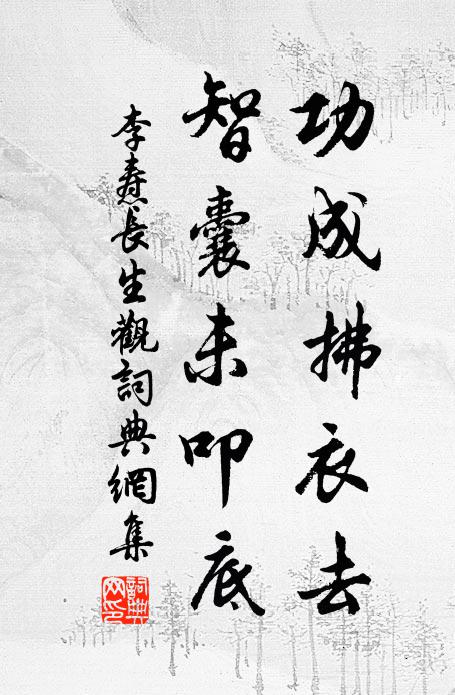 功成拂衣去
智囊未叩底
李燾長生觀詞典網集
詞典網印